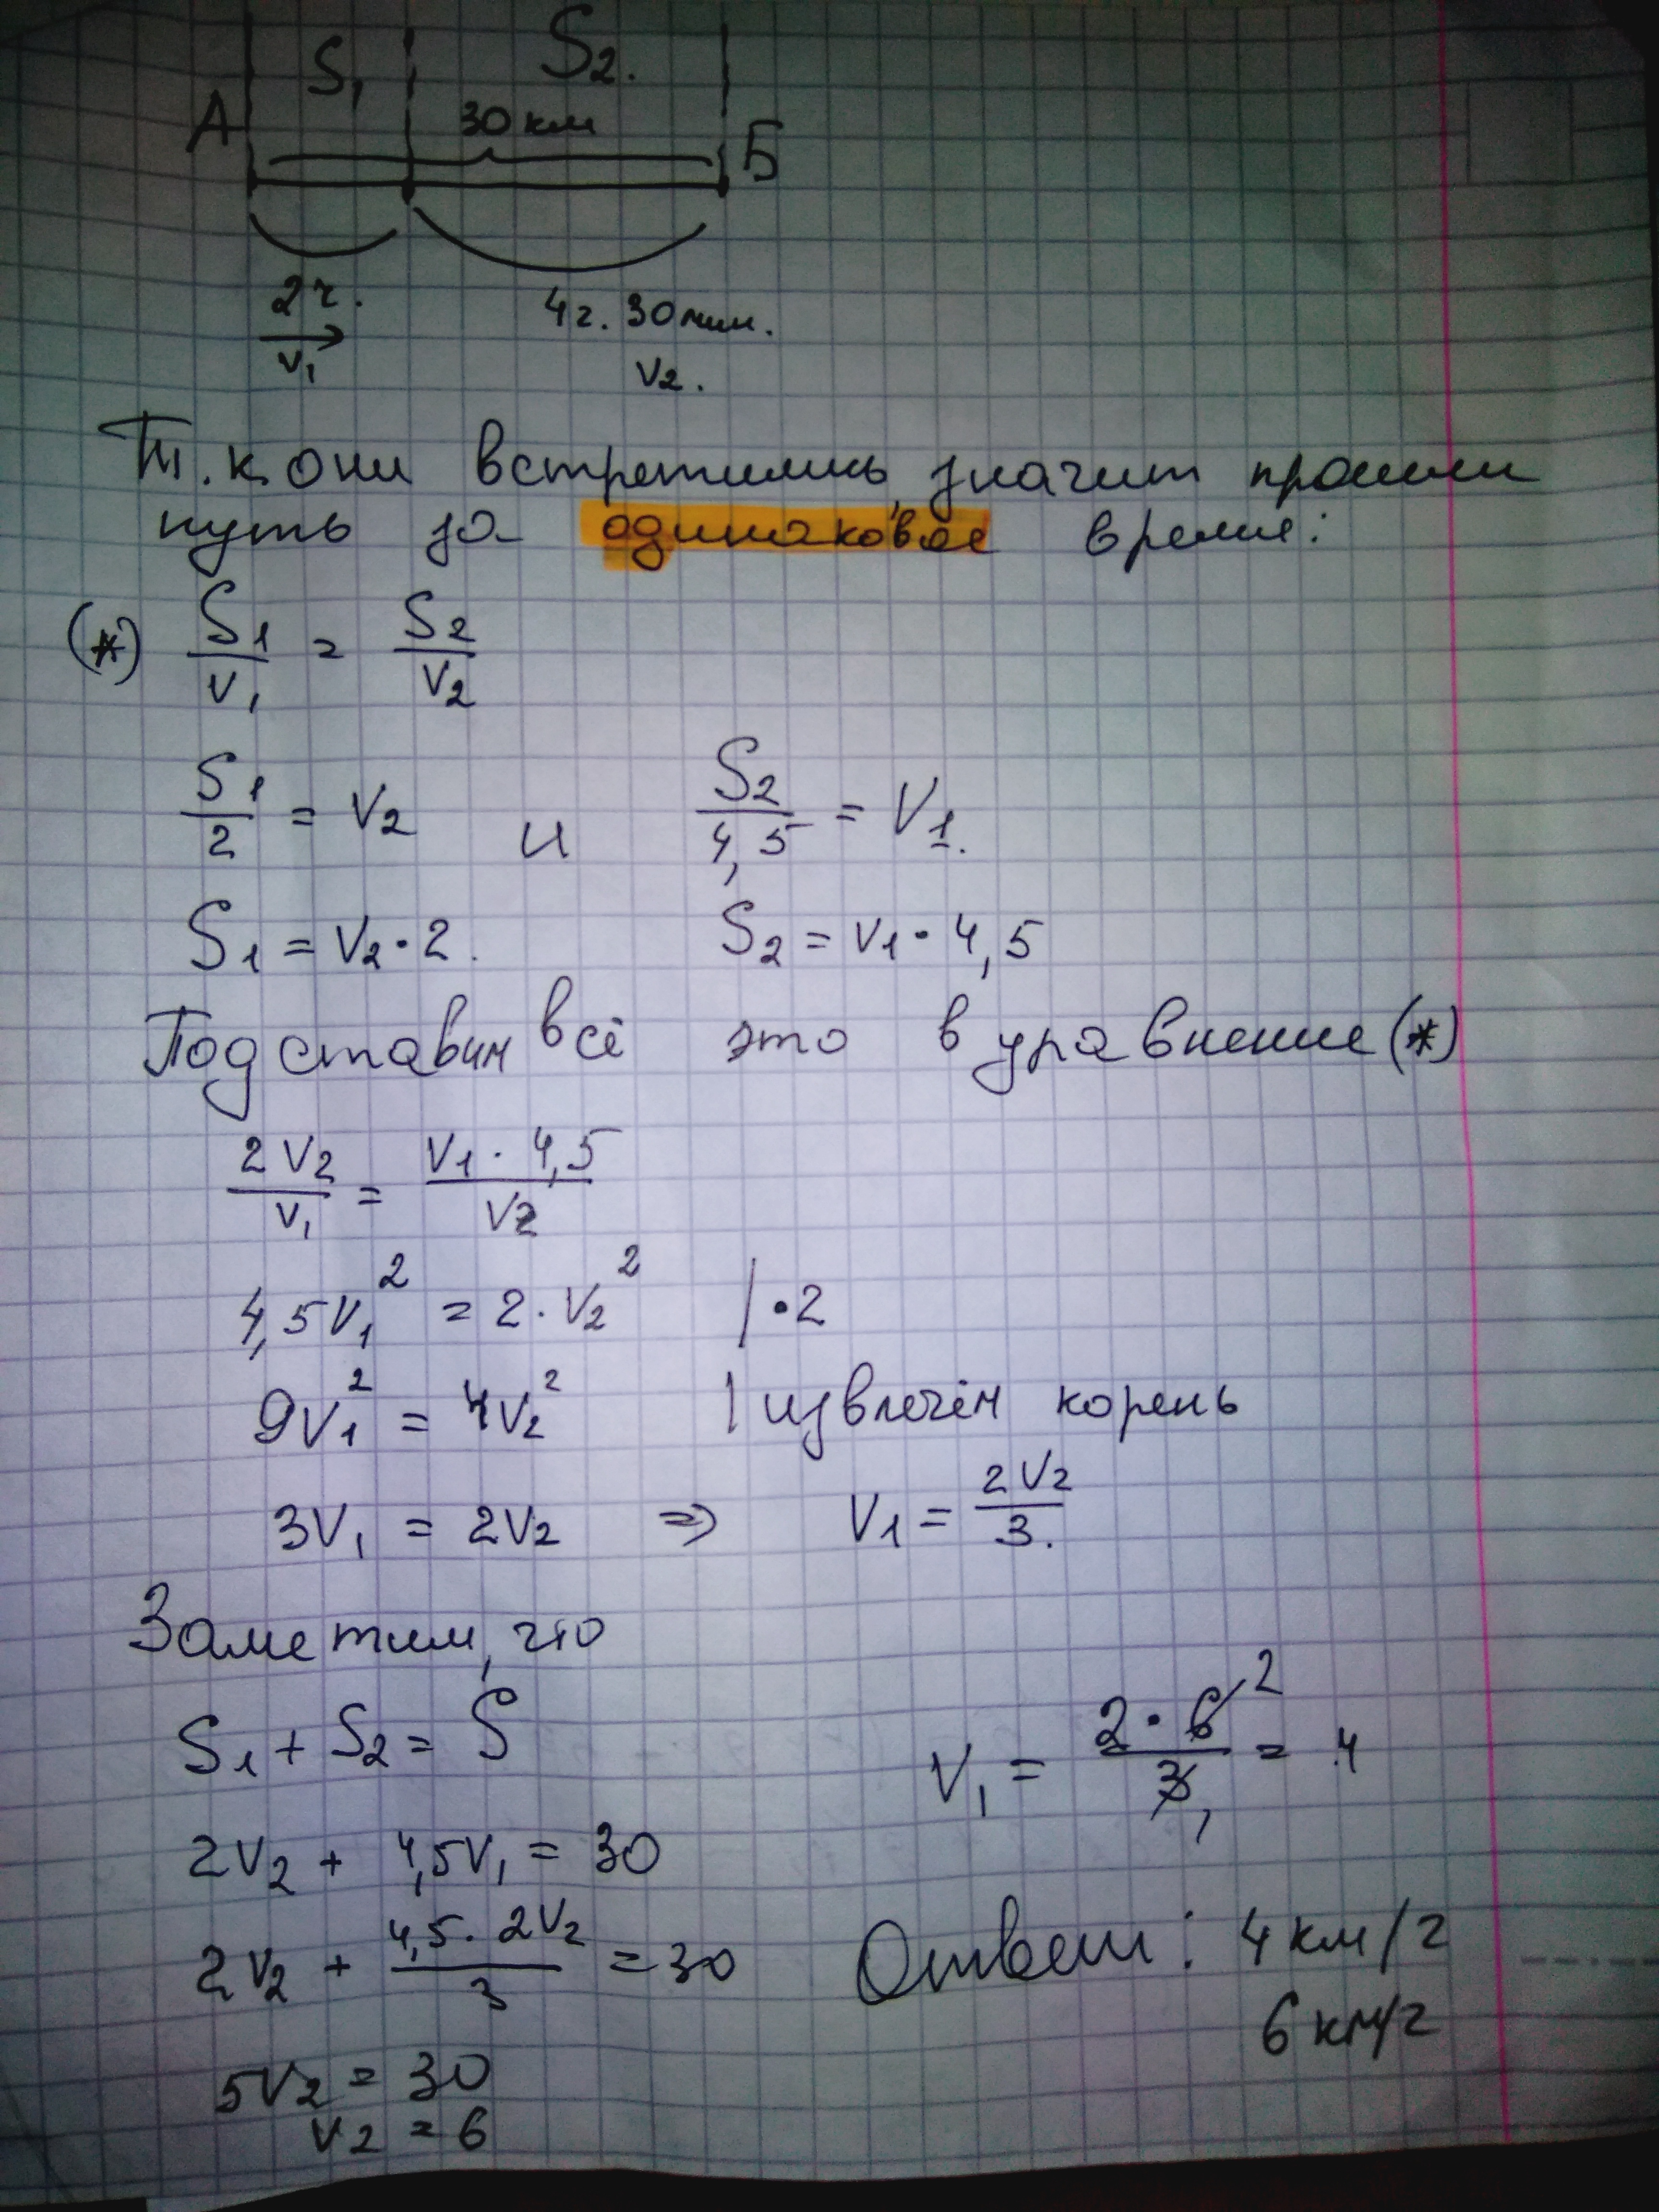 S₁ S₂.
А 30 км Б
2ч. 4ч. 30 мин.
V₁ V₂.
Т.к они встретились, значит прошли
путь за одинаковое время:
(*) S₁/V₁ = S₂/V₂
S₁/2 = V₂ и S₂/4,5 = V₁.
S₁ = V₂ · 2. S₂ = V₁ · 4,5
Подставим всё это в уравнение (*)
2V₂/V₁ = V₁ · 4,5/V₂
4,5V₁² = 2 · V₂² | · 2
9V₁² = 4V₂² | извлечём корень
3V₁ = 2V₂ => V₁ = 2V₂/3.
Заметим, что
S₁ + S₂ = S
V₁ = 2 · 6 2/3 1 = 4
2V₂ + 4,5V₁ = 30
2V₂ + 4,5 · 2V₂/3 = 30
Ответ: 4 км/ч
6 км/ч
5V₂ = 30
V₂ = 6